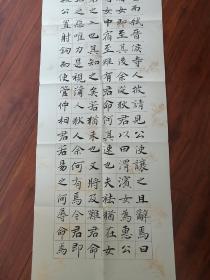 而弒晉侯寺人披請見公使讓之且辭焉曰
女即至其後余從狄君以田渭濱女為惠公
女中宿至雖有君命何其速也夫袪猶在女
之入也其知之矣若猶未也又將及難君命
之惡唯力是視蒲人狄人余何有焉今君即
公置射鉤而使管仲相君若易之何辱命焉